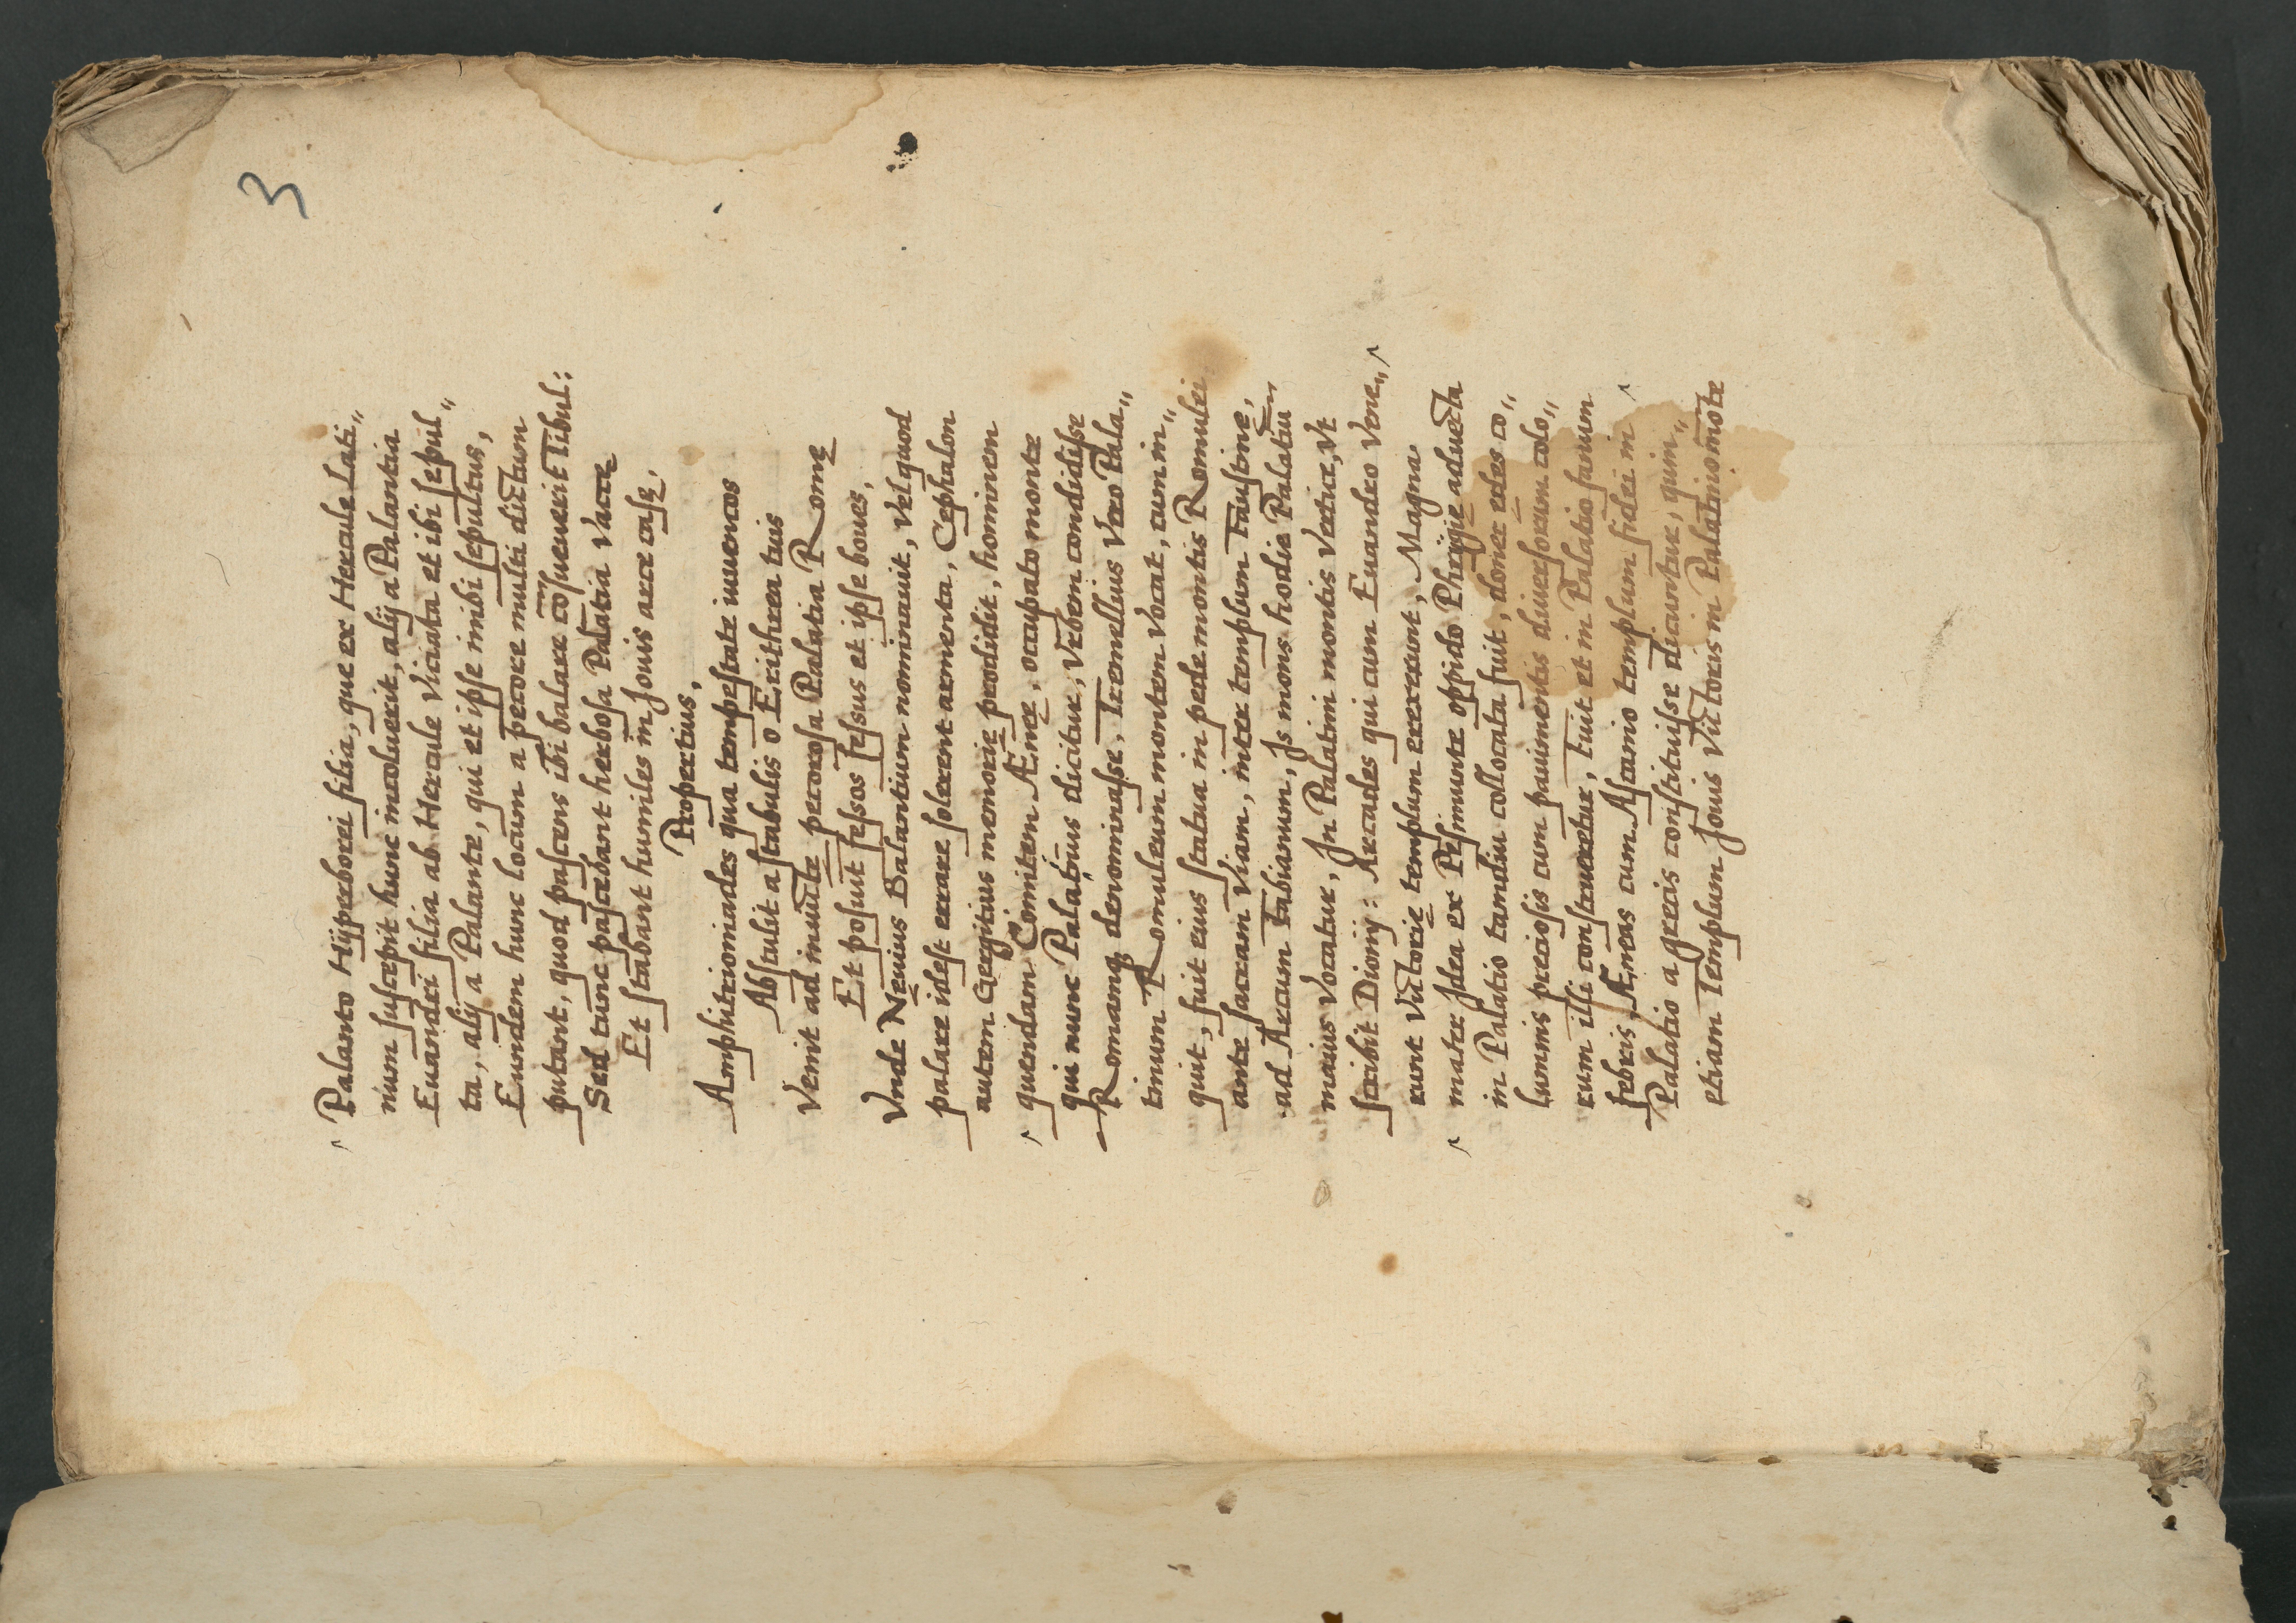 3
Palanto Hÿperborei filia, que ex Hercule Lati„
num suscepit hunc incoluerit, alij a Palantia
Euandri filia ab Hercule Viciata et ibi sepul„
ta, alij a Palante, qui et ipse inibi sepultus,
Eundem hunc locum a pecore multi dictum
putant, quod pascens ibi balare cōsueuerit Tibul:
Sed tunc pascebant herbosa Palatia Vacce
Et stabant humiles in Jouis arce case.
Propertius,
Amphitrioniades qua tempestate iuuencos
Abstulit a stabulis o Erithrea tuis
Venit ad inuicte pecorosa Palatia Romę
Et posuit fessos fessus et ipse boues,
Vnde Nęuius Balantium nominauit, Vel quod
palare idest errare solerent armenta, Cephalon
autem Gergitius memorię prodidit, hominem
quendam Comitem Æneę, occupato monte
qui nunc Palatinus dicitur, Vrbem condidisse
Romamq denominasse. Tremellius Vero Pala„
tinum Romuleum montem Vocat, cum in„
quit, fuit eius statua in pede montis Romulei
ante sacram Viam, inter templum Faustinę,
ad Arcum Fabianum, Is mons hodie Palatiū
maius Vocatur, In Palatini montis Vertice, Vt
scribit Dionij: Arcades qui cum Euandro Vene„
runt Victorię templum erexerunt, Magna
mater Idea ex Pesimunte oppido Phrygię aduecta
in Palatio tamdiu collocata fuit, donec edes co„
luminis preciosis cum pauimentis diuersorum colo„
rum illi construeretur, Fuit et in Palatio fanum
febris, Æneas cum Ascanio templum fidei in
Palatio a grecis constituisse dicuntur, quin„
etiam Templum Jouis Victoris in Palatino mōte